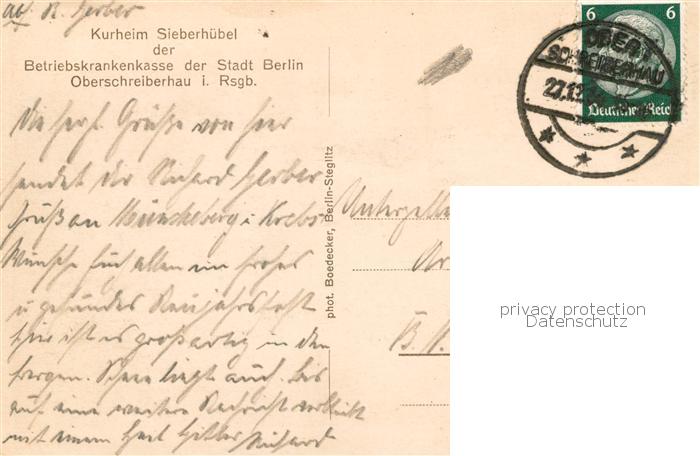 abs. R. Gerber
Kurheim Sieberhübel
der
Betriebskrankenkasse der Stadt Berlin
Oberschreiberhau i. Rsgb.
6 6
OBER
SCHREIBERHAU
27.12.
Deutsches Reich
Die herzl. Grüße von hier
sendet dir Richard Gerber
Gruß an Müncheberg u. Krebs
Wünsche Euch allen ein frohes
u. gesundes Neujahrsfest
hier ist es großartig in den
Bergen. Schnee liegt auch. Bis
auf eine weitere Nachricht verbleibt
mit einem Heil Hitler Richard
phot. Boedecker, Berlin-Steglitz
B.
privacy protection
Datenschutz